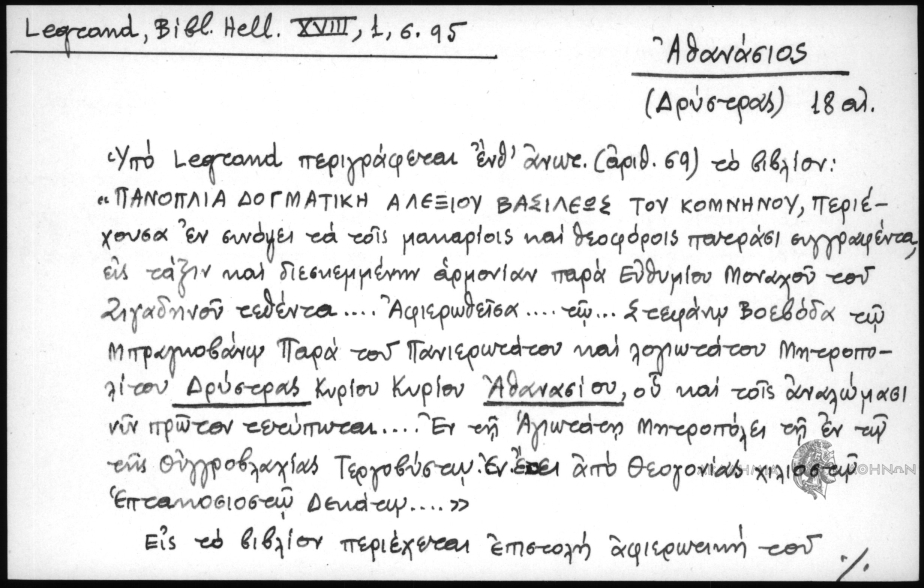 Legrand, Bibl. Hell. XVIII, 1, σ. 95
Ἀθανάσιος
(Δρύστρας) 18 αἰ.
Ὑπό Legrand περιγράφεται ἔνθ' ἄνωτ. (ἀριθ. 69) τό βιβλίον:
«ΠΑΝΟΠΛΙΑ ΔΟΓΜΑΤΙΚΗ ΑΛΕΞΙΟΥ ΒΑΣΙΛΕΩΣ ΤΟΥ ΚΟΜΝΗΝΟΥ, περιέ-
χουσα ἐν συνόψει τά τοῖς μακαρίοις καί θεοφόροις πατράσι συγγραφέντα,
εἰς τάξιν καί διεσκεμμένην ἁρμονίαν παρά Εὐθυμίου Μοναχοῦ τοῦ
Ζιγαδηνοῦ τεθέντα.... Ἀφιερωθεῖσα.... τῷ... Στεφάνῳ Βοεβόδα τῷ
Μπραγκοβάνῳ Παρά τοῦ Πανιερωτάτου καί λογιωτάτου Μητροπο-
λίτου Δρύστρας Κυρίου Κυρίου Ἀθανασίου, οὗ καί τοῖς ἀναλώμασι
νῦν πρῶτον τετύπωται.... Ἐν τῇ Ἁγιωτάτῃ Μητροπόλει τῇ ἐν τῷ
τῆς Οὐγγροβλαχίας Τεργοβύστῳ. Ἐν ἔτει ἀπό Θεογονίας χιλιοστῷ
Ἑπτακοσιοστῷ Δεκάτῳ....»
Εἰς τό βιβλίον περιέχεται ἐπιστολή ἀφιερωτική τοῦ
./.